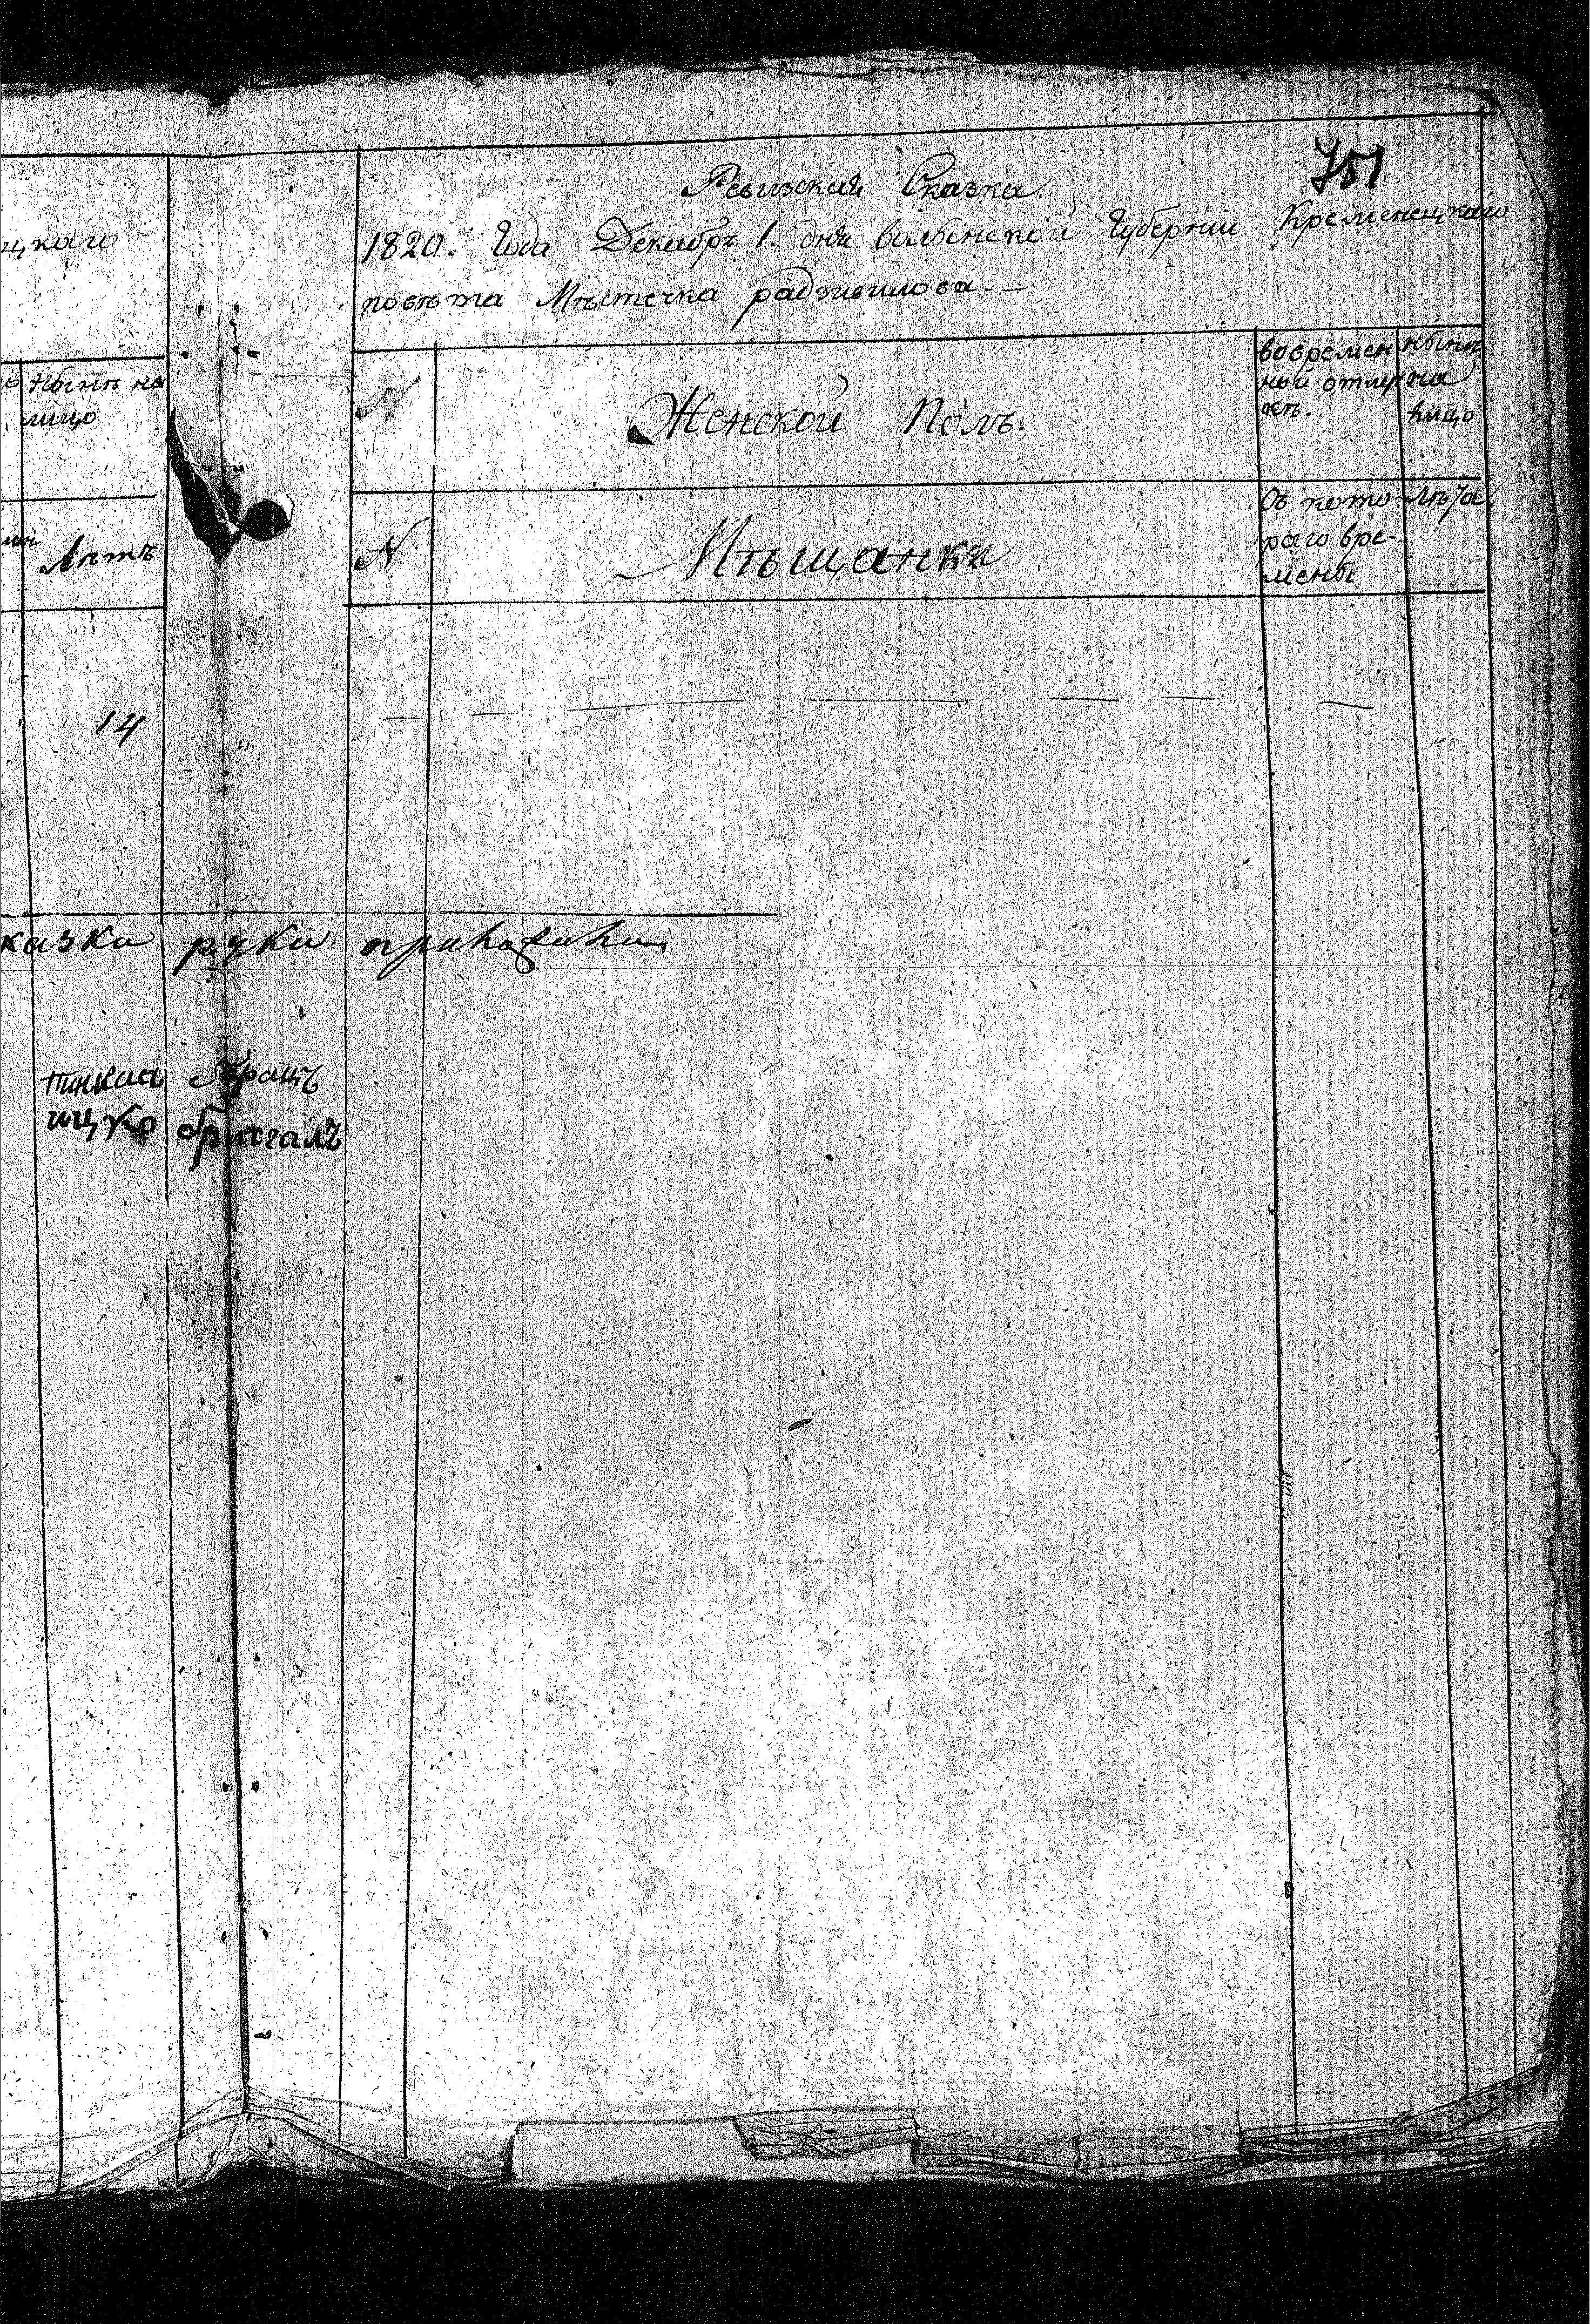 751
Ревизская Сказка.
1820. Года Декабря 1. дня волынской Губернии Кременецкаго
повѣта Мѣстечка радзивилова.
цкаго
Нынѣ на
лицо
Лѣтъ
14
Женской Полъ.
во времен
ной отлуч
кѣ.
нынѣ
на
лицо
N
Мѣщанки
Съ кото
раго вре-
мены
Лѣта
казки руки приложили
Пинкас
ицко